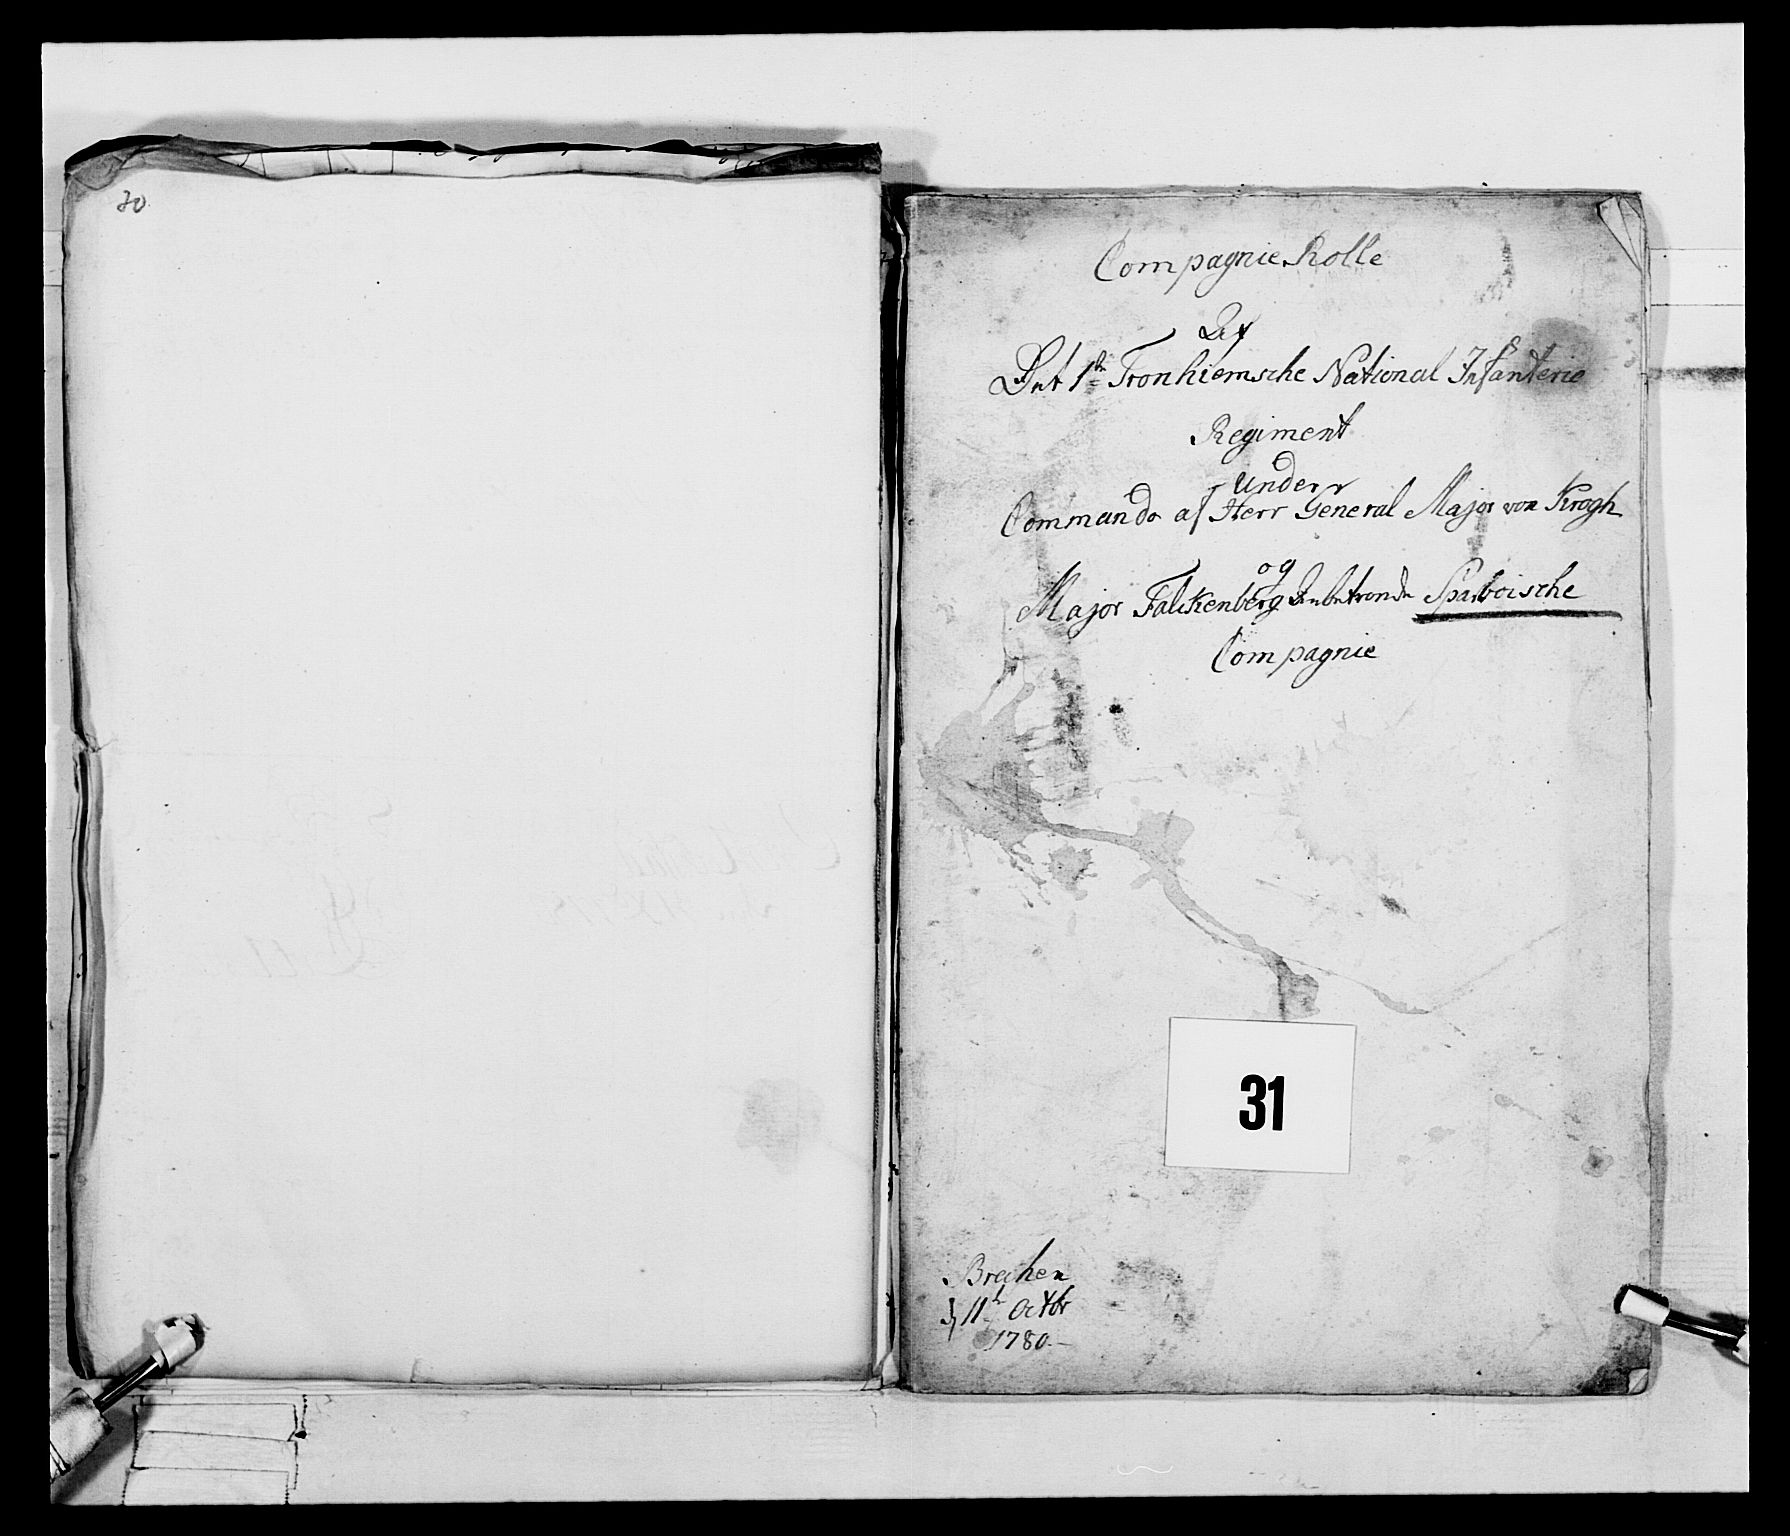 30
Compagnie Rolle
Af
Det 1te Tronhiemsche National Infanterie
Regiment
under
Commando af Herr General Major von Krogh
og
Major Falckenberg Anbetroede Sparboische
Compagnie
31
d 11te Octbr
1780.